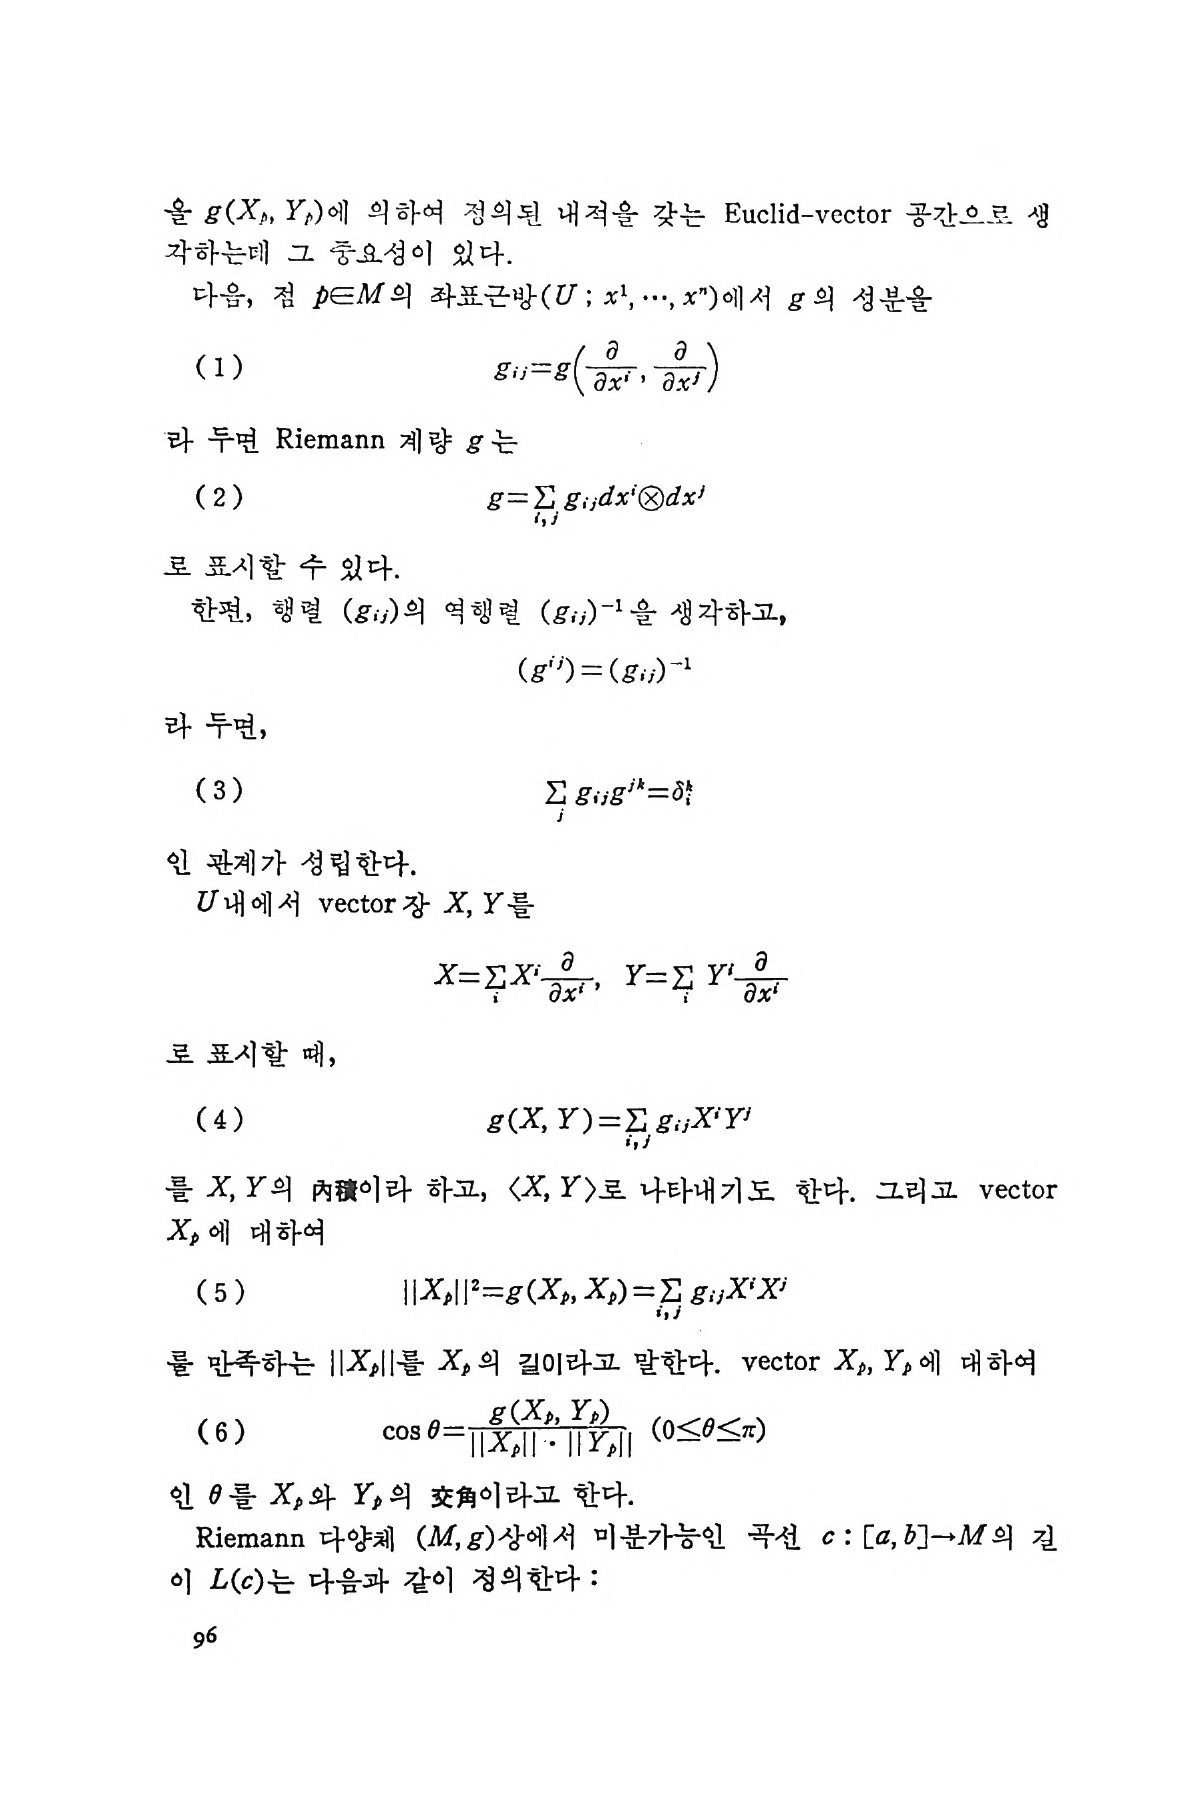 을 g(Xₚ, Yₚ)에 의하여 정의된 내적을 갖는 Euclid-vector 공간으로 생
각하는데 그 중요성이 있다.
다음, 점 p∈M의 좌표근방(U ; x¹, ⋯, xⁿ)에서 g의 성분을
(1) g_{ij}=g(∂/∂x^i, ∂/∂x^j)
라 두면 Riemann 계량 g는
(2) g=∑_{i,j} g_{ij}dx^i⊗dx^j
로 표시할 수 있다.
한편, 행렬 (g_{ij})의 역행렬 (g_{ij})⁻¹을 생각하고,
(g^{ij})=(g_{ij})⁻¹
라 두면,
(3) ∑_j g_{ij}g^{jk}=δ_i^k
인 관계가 성립한다.
U내에서 vector장 X, Y를
X=∑_i X^i ∂/∂x^i, Y=∑_i Y^i ∂/∂x^i
로 표시할 때,
(4) g(X, Y)=∑_{i,j} g_{ij}X^iY^j
를 X, Y의 內積이라 하고, 〈X, Y〉로 나타내기도 한다. 그리고 vector
Xₚ에 대하여
(5) ||Xₚ||²=g(Xₚ, Xₚ)=∑_{i,j} g_{ij}X^iX^j
를 만족하는 ||Xₚ||를 Xₚ의 길이라고 말한다. vector Xₚ, Yₚ에 대하여
(6) cos θ=g(Xₚ, Yₚ)/||Xₚ||·||Yₚ|| (0≤θ≤π)
인 θ를 Xₚ와 Yₚ의 交角이라고 한다.
Riemann 다양체 (M, g)상에서 미분가능인 곡선 c : [a, b]→M의 길
이 L(c)는 다음과 같이 정의한다 :
96